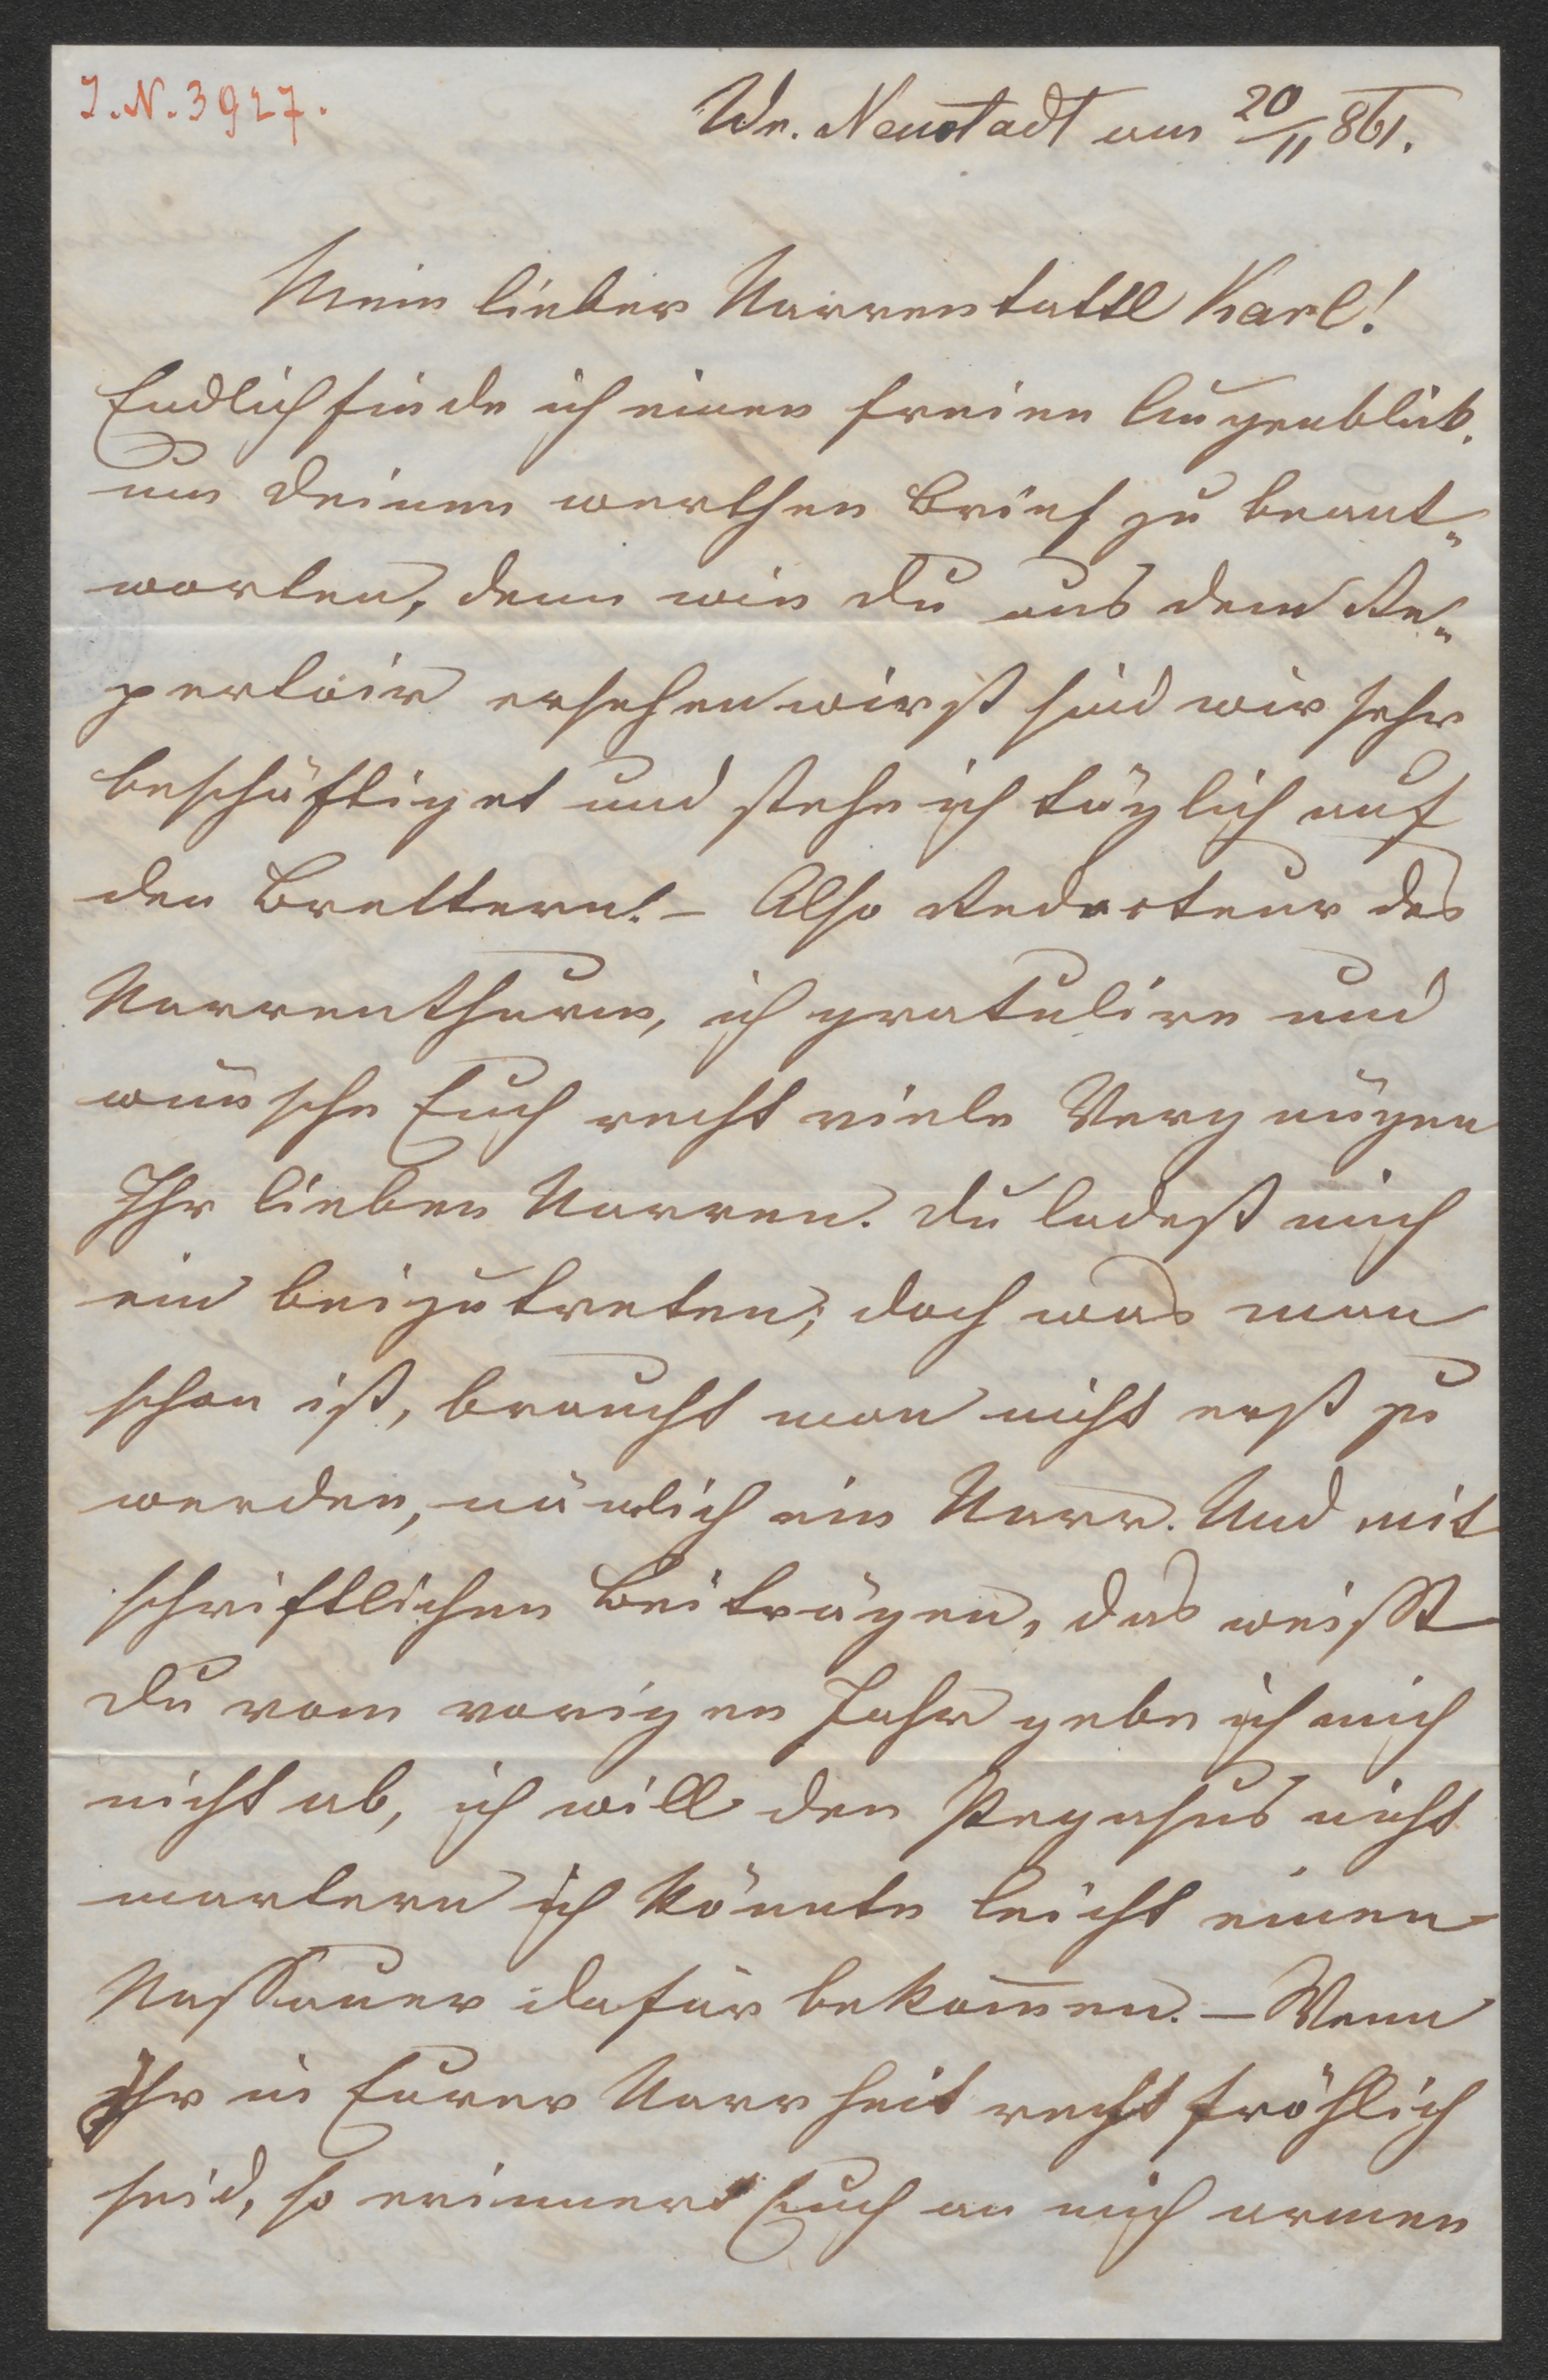 I.N. 3927.
Wr. Neustadt am 20/11 861.
Mein lieber Narrentattl Karl!
Endlich finde ich einen freien Augenblick,
um Deinen werthen Brief zu beant„
worten, denn wie Du aus dem Re„
pertoir ersehen wirst sind wir sehr
beschäftiget und stehe ich täglich auf
den Brettern! – Also Redacteur des
Narrenthurm, ich gratulire und
wünsche Euch recht viele Vergnügen
Ihr lieben Narren. Du ladest mich
ein beizutreten; doch was man
schon ist, braucht man nicht erst zu
werden, nämlich ein Narr. Und mit
schriftlichen Beiträgen, das weißt
Du vom vorigen Jahr gebe ich mich
nicht ab, ich will den Pegasus nicht
martern ich könnte leicht einen
Nassauer dafür bekom̅en. – Wenn
Ihr in Eurer Narrheit recht fröhlich
seid, so erinnert Euch an mich armen